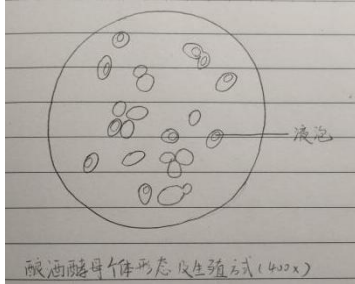 液泡
酿酒酵母个体形态及生殖方式(400x)